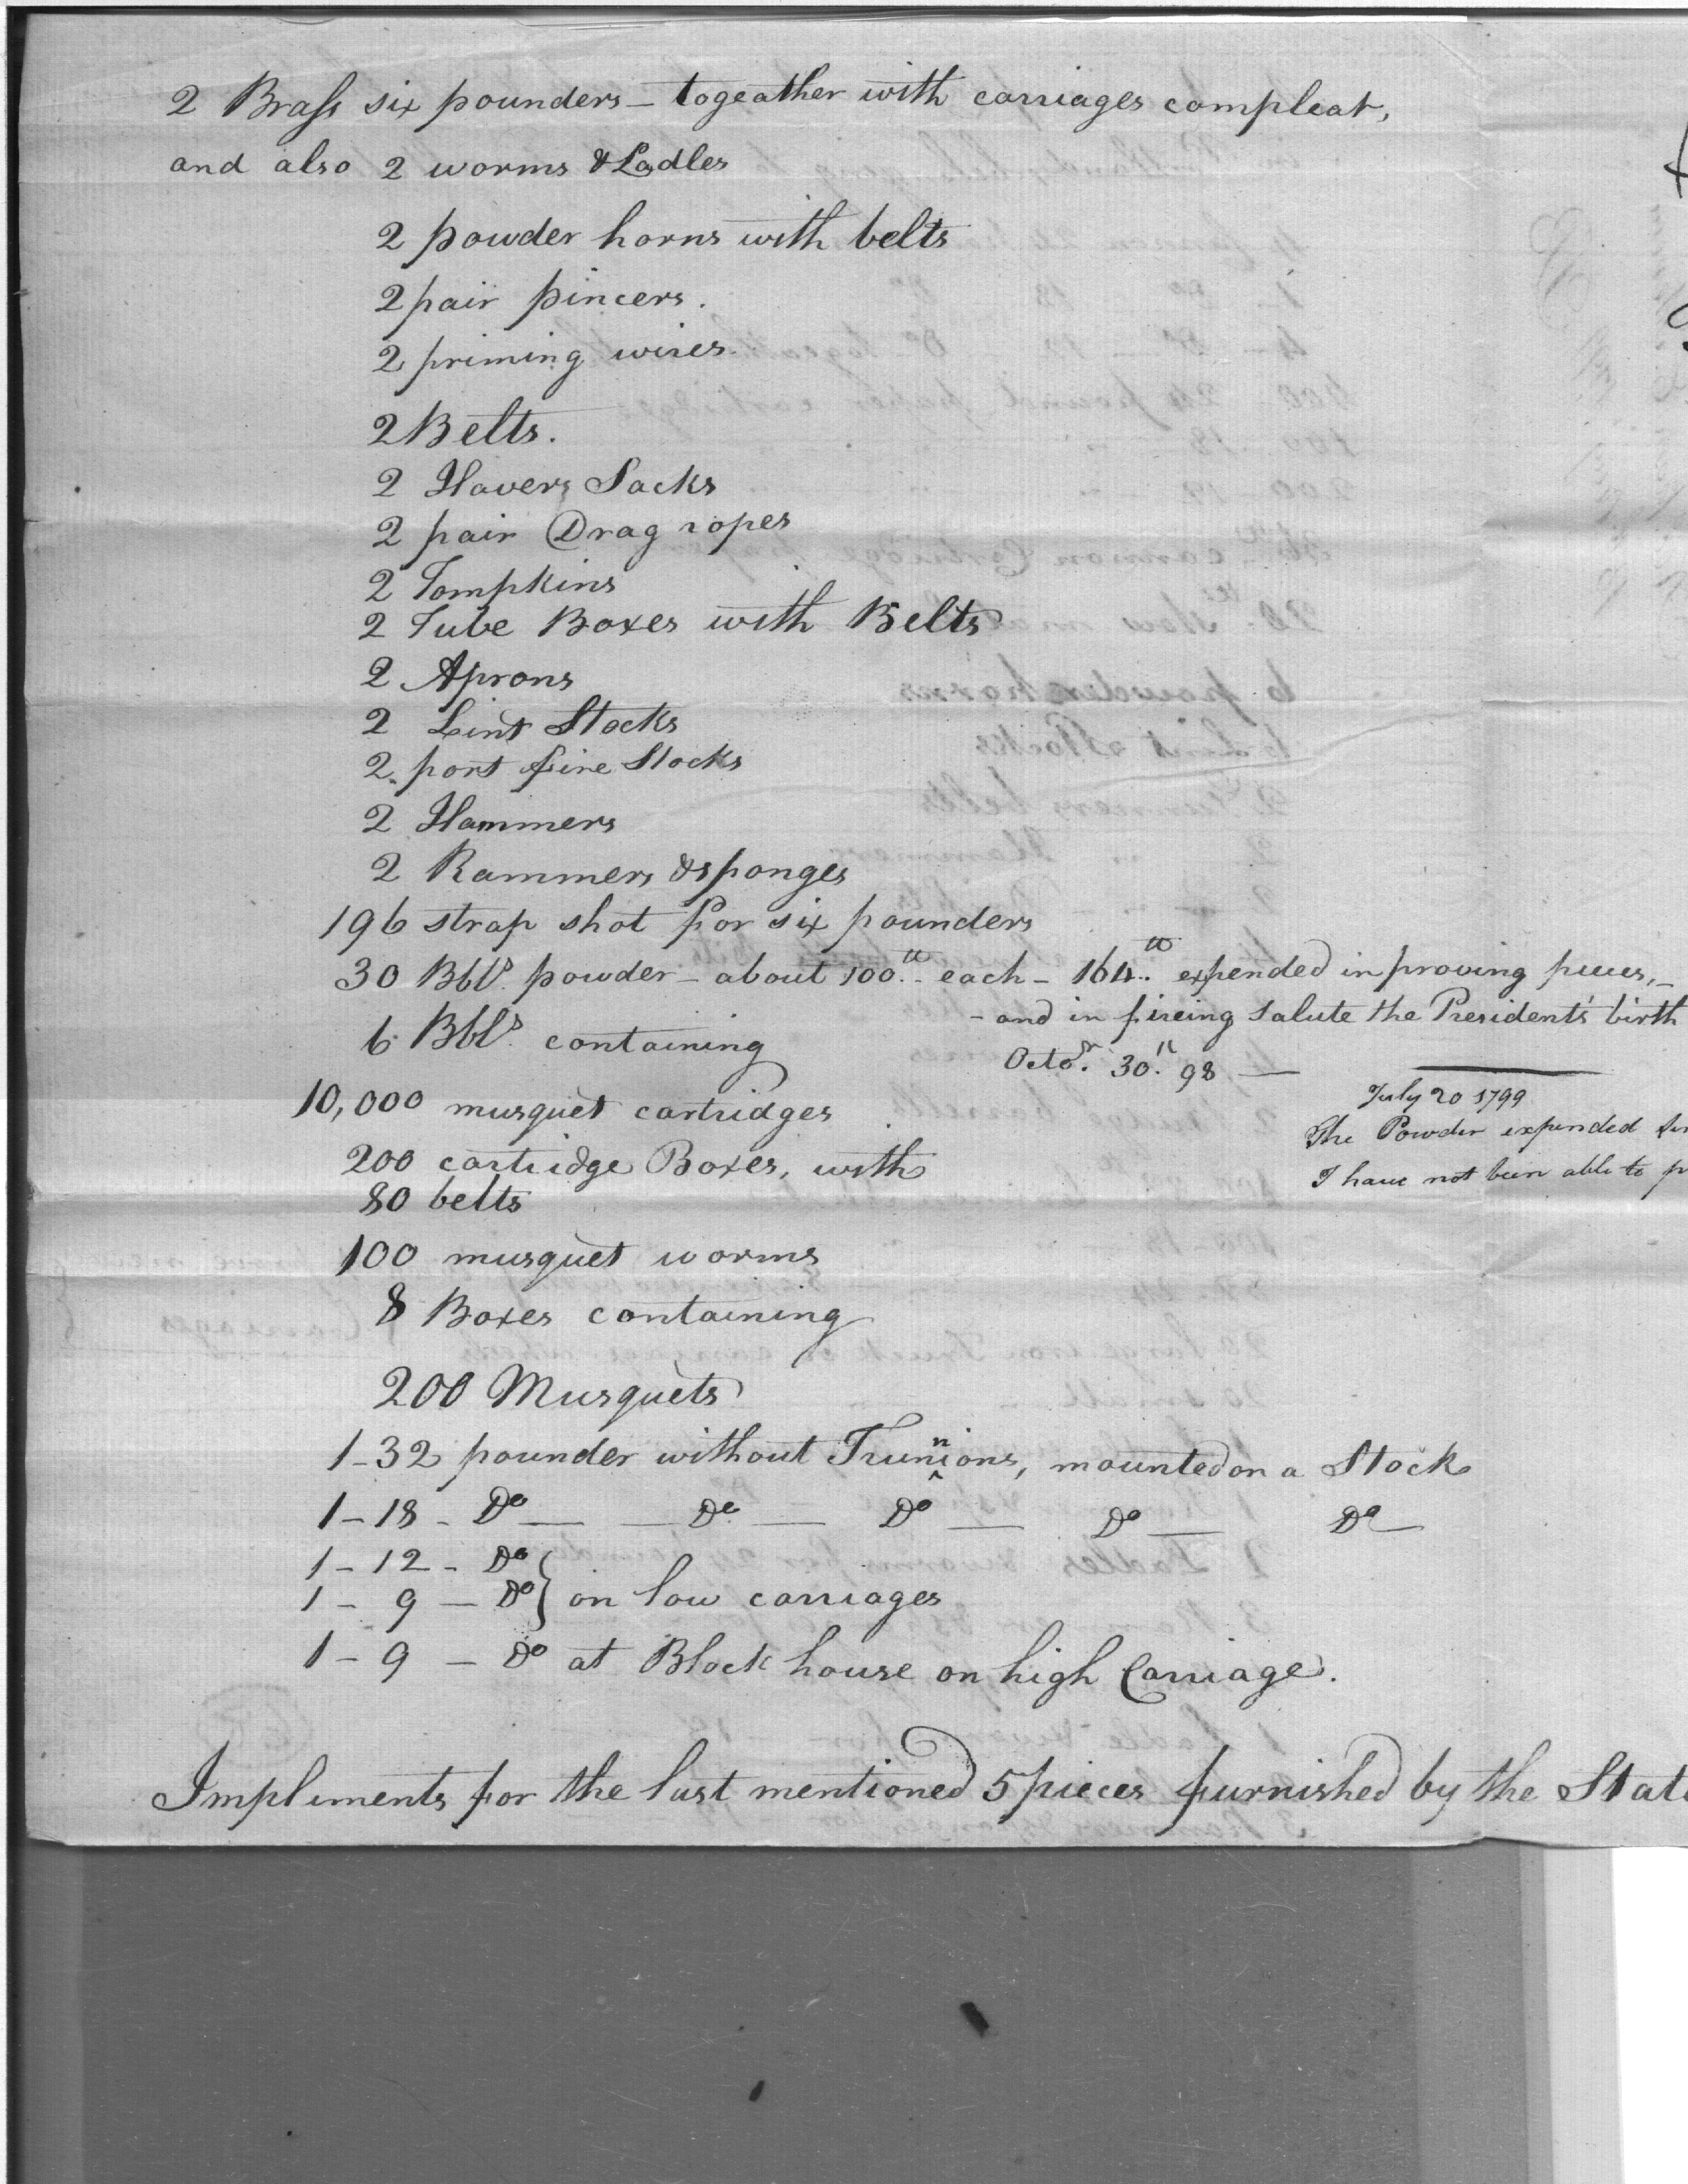 2 Brass six pounders – togeather with carriages compleat,
and also 2 worms & Ladles
2 powder horns with belts
2 pair pincers.
2 priming wires.
2 Belts.
2 Havers Sacks
2 pair Drag ropes
2 Tompkins
2 Tube Boxes with Belts
2 Aprons
2 Lint Stocks
2 port fire Stocks
2 Hammers
2 Rammers & sponges
196 strap shot for six pounders
30 Bbls. powder – about 100 lb. each – 164 lb. expended in proving pieces, –
– and in fireing Salute the Presidents birth
Octor. 30th. 98 —
6 Bbls. containing
10,000 musquet cartridges
July 20 1799
The Powder expended
200 cartridge Boxes, with
I have not been able to
80 belts
100 musquet worms
8 Boxes containing
200 Musquets
1–32 pounder without Trunnions, mounted on a Stock
1–18 – Do — — Do — Do — Do — Do —
1 – 12 – Do
1 – 9 – Do } on low carriages
1 – 9 – Do at Block house on high Carriage.
Impliments for the last mentioned 5 pieces furnished by the State